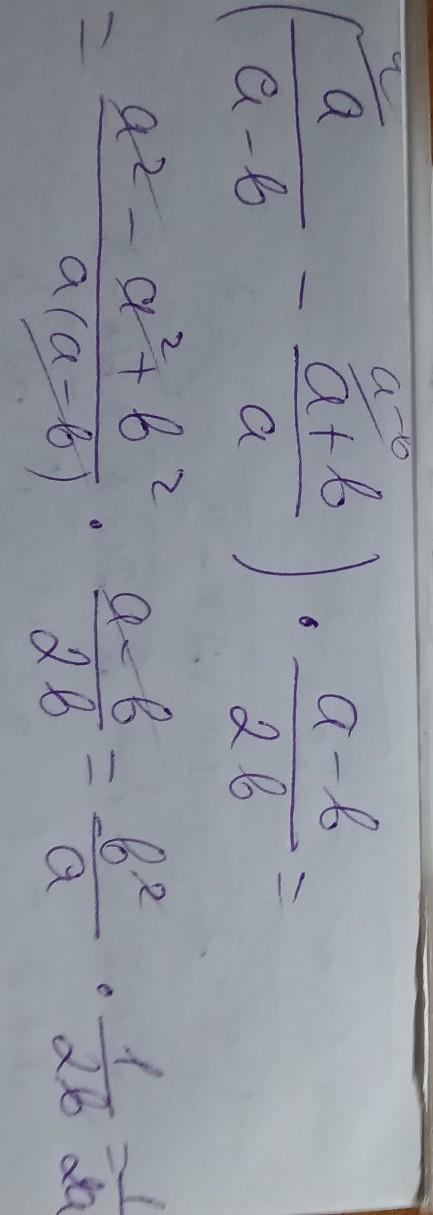 (a/(a-b) - (a+b)/a) · (a-b)/2b =
= (a² - a² + b²)/(a(a-b)) · (a-b)/2b = b²/a · 1/2b =